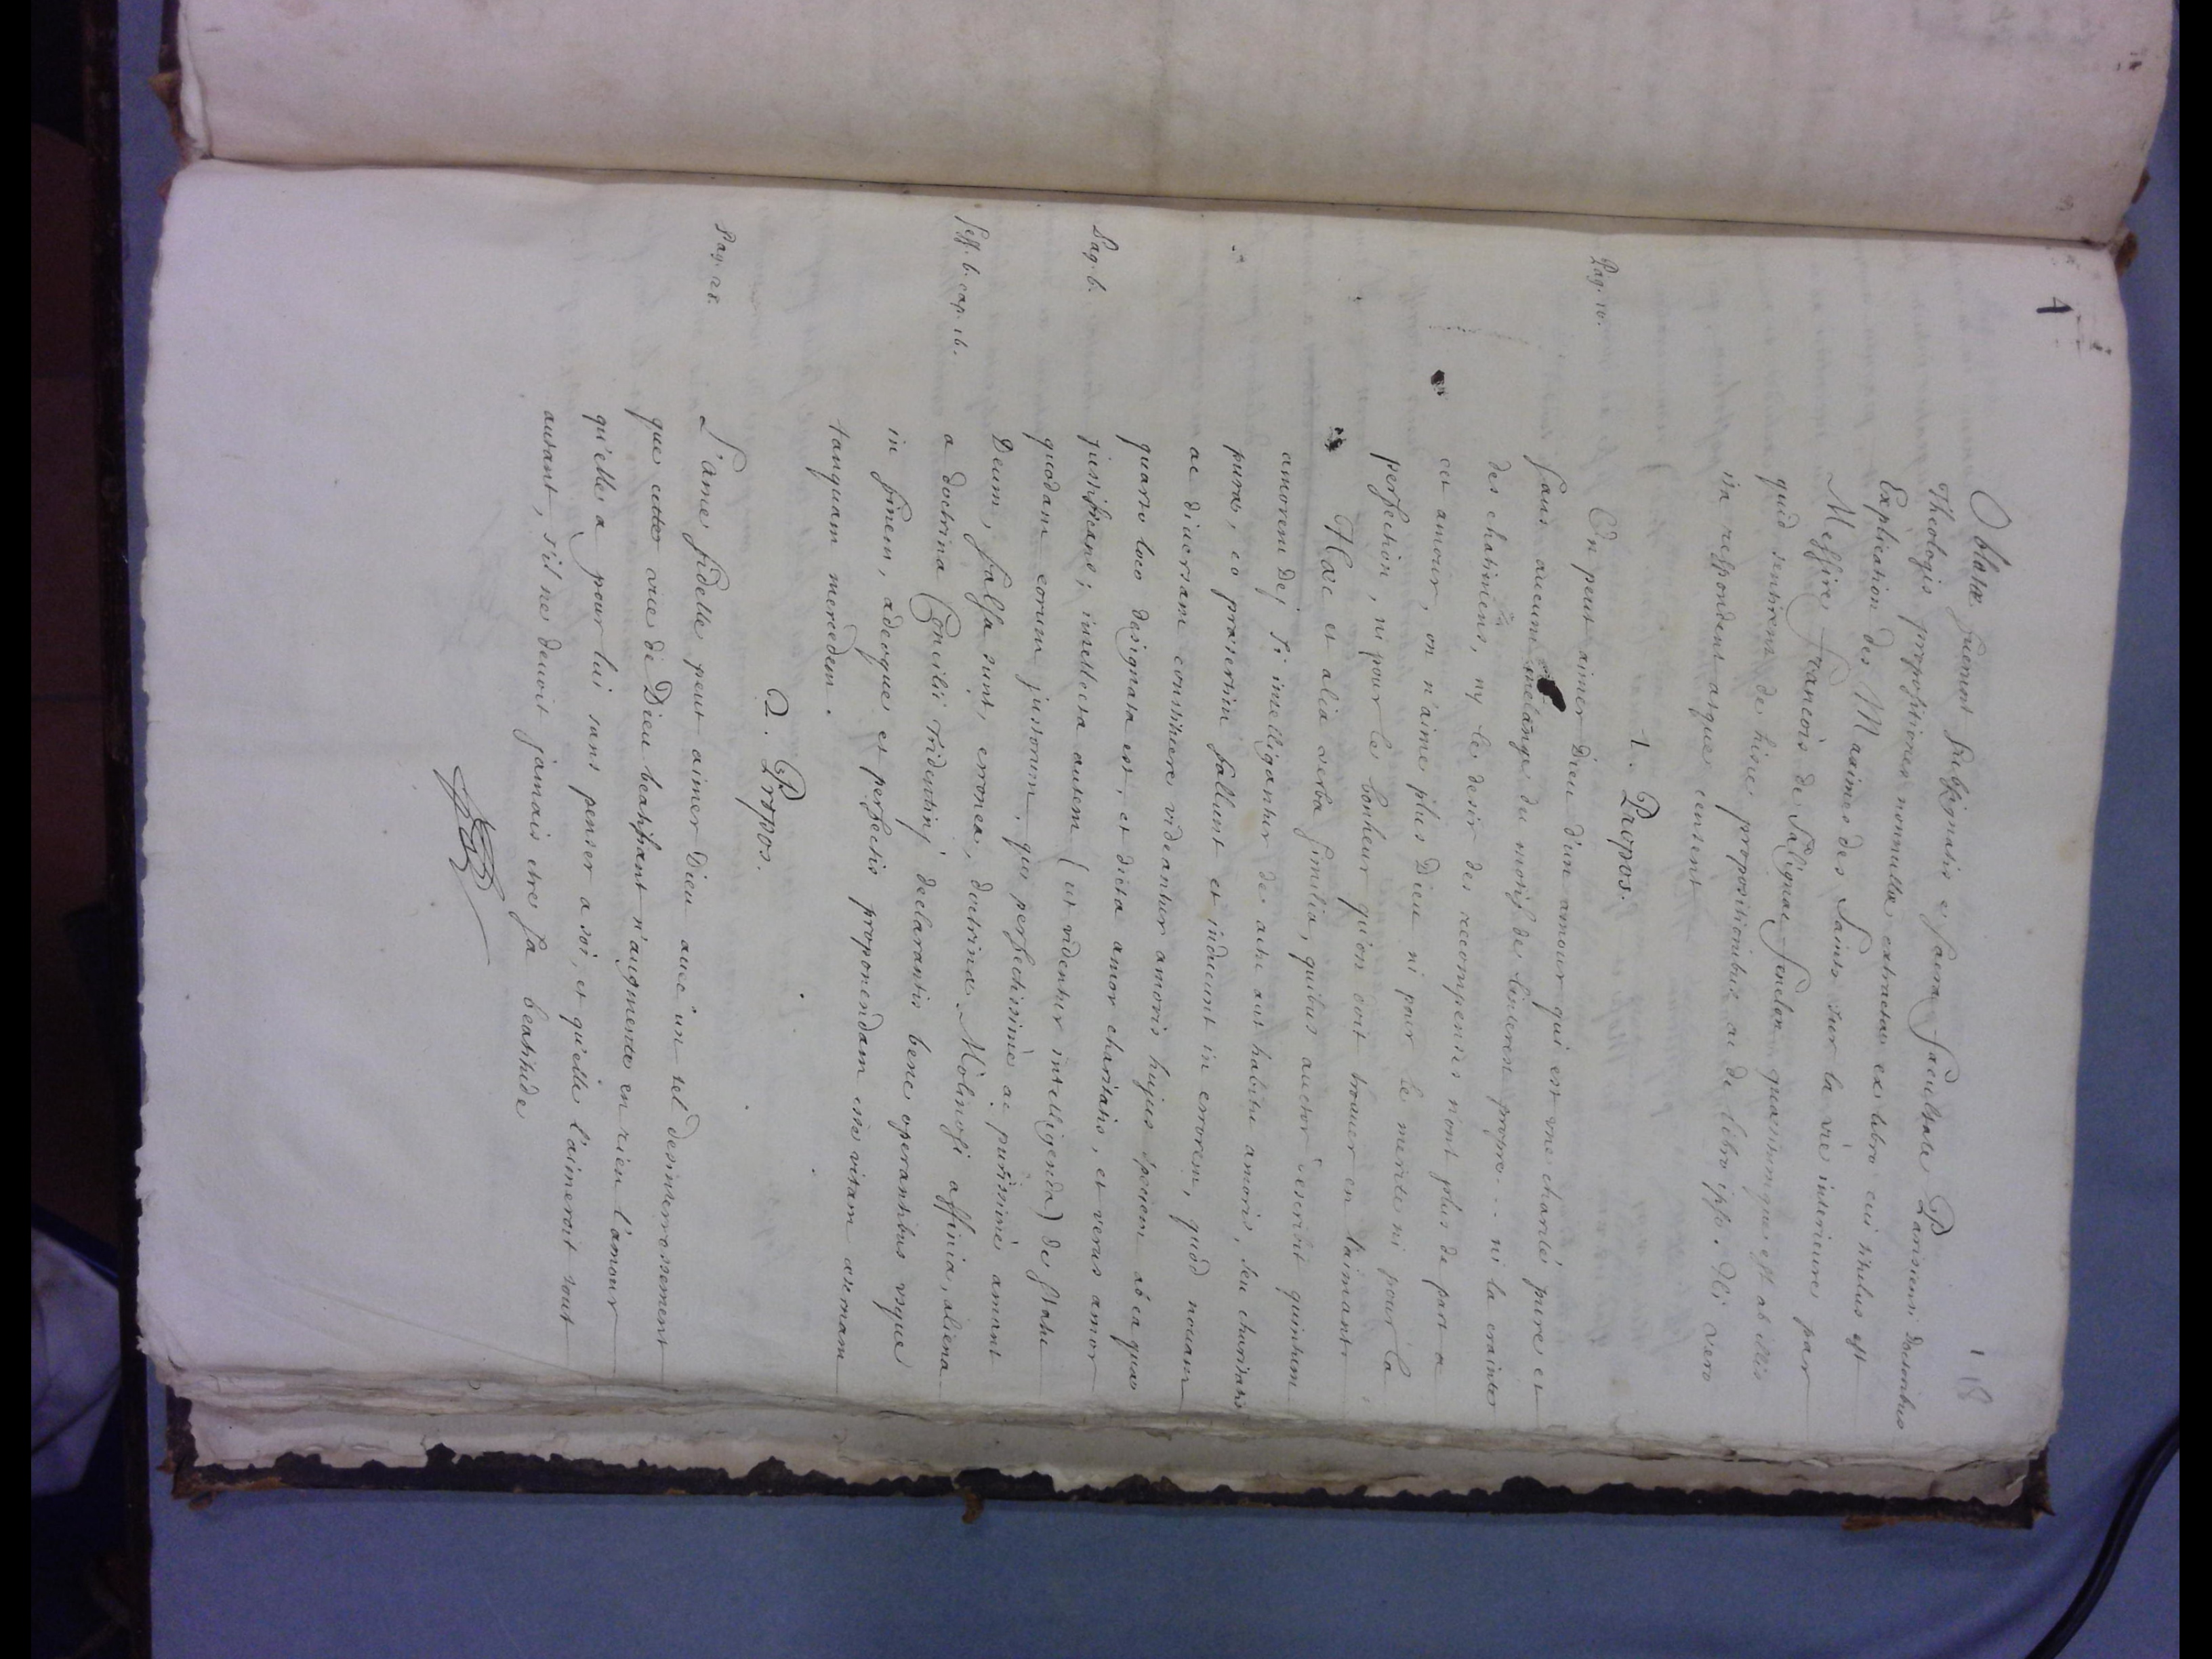 4
18
Oblatæ fuerunt subsignatis e sacra facultate Parisiensi doctoribus
Theologis propositiones nonnullæ extractæ ex libro cui titulus est
Explication des Maximes des Saints sur la vie interieure par
Messire François de Salignac Fenelon quæsitumque est ab illis
quid sentirent de hisce propositionibus ac de libro ipso. Illi vero
ita respondent atque censent
1. Propos.
Pag. 10.
On peut aimer Dieu d'un amour qui est une charité pure et
sans aucun melange du motif de l'interest propre... ni la crainte
des chatimens, ny le desir des recompenses n'ont plus de part a
cet amour, on n'aime plus Dieu ni pour le merite ni pour la
perfection, ni pour le bonheur qu'on doit trouuer en l'aimant
Hæc et alia verba similia, quibus auctor describit quintum
amorem dej si intelligantur de actu aut habitu amoris, seu charitatis
puræ, eo præsertim fallunt et inducunt in errorem, quòd nouam
ac diuersam constituere videantur amoris hujus speciem ab ea quæ
Pag. 6.
quarto loco designata est, et dicta amor charitatis, et verus amor
justificans; intellecta autem (ut videntur intelligenda) de statu
quodam eorum justorum, qui perfectissimè ac purissimè amant
Deum, falsa sunt, erronea, doctrinæ Molinosi affinia, aliena
Sess. 6. cap. 16.
a doctrina Concilii Tridentinj declarantis bene operantibus vsque
in finem, adeoque et perfectis proponendam esse vitam æternam
tanquam mercedem.
2. Propos.
Pag. 28.
L'ame fidelle peut aimer Dieu auec un tel desinterressement
que cette vüe de Dieu beatifiant n'augmente en rien l'amour
qu'elle a pour lui sans penser a soi, et qu'elle l'aimeroit tout
autant, s'il ne deuoit jamais etre sa beatitude